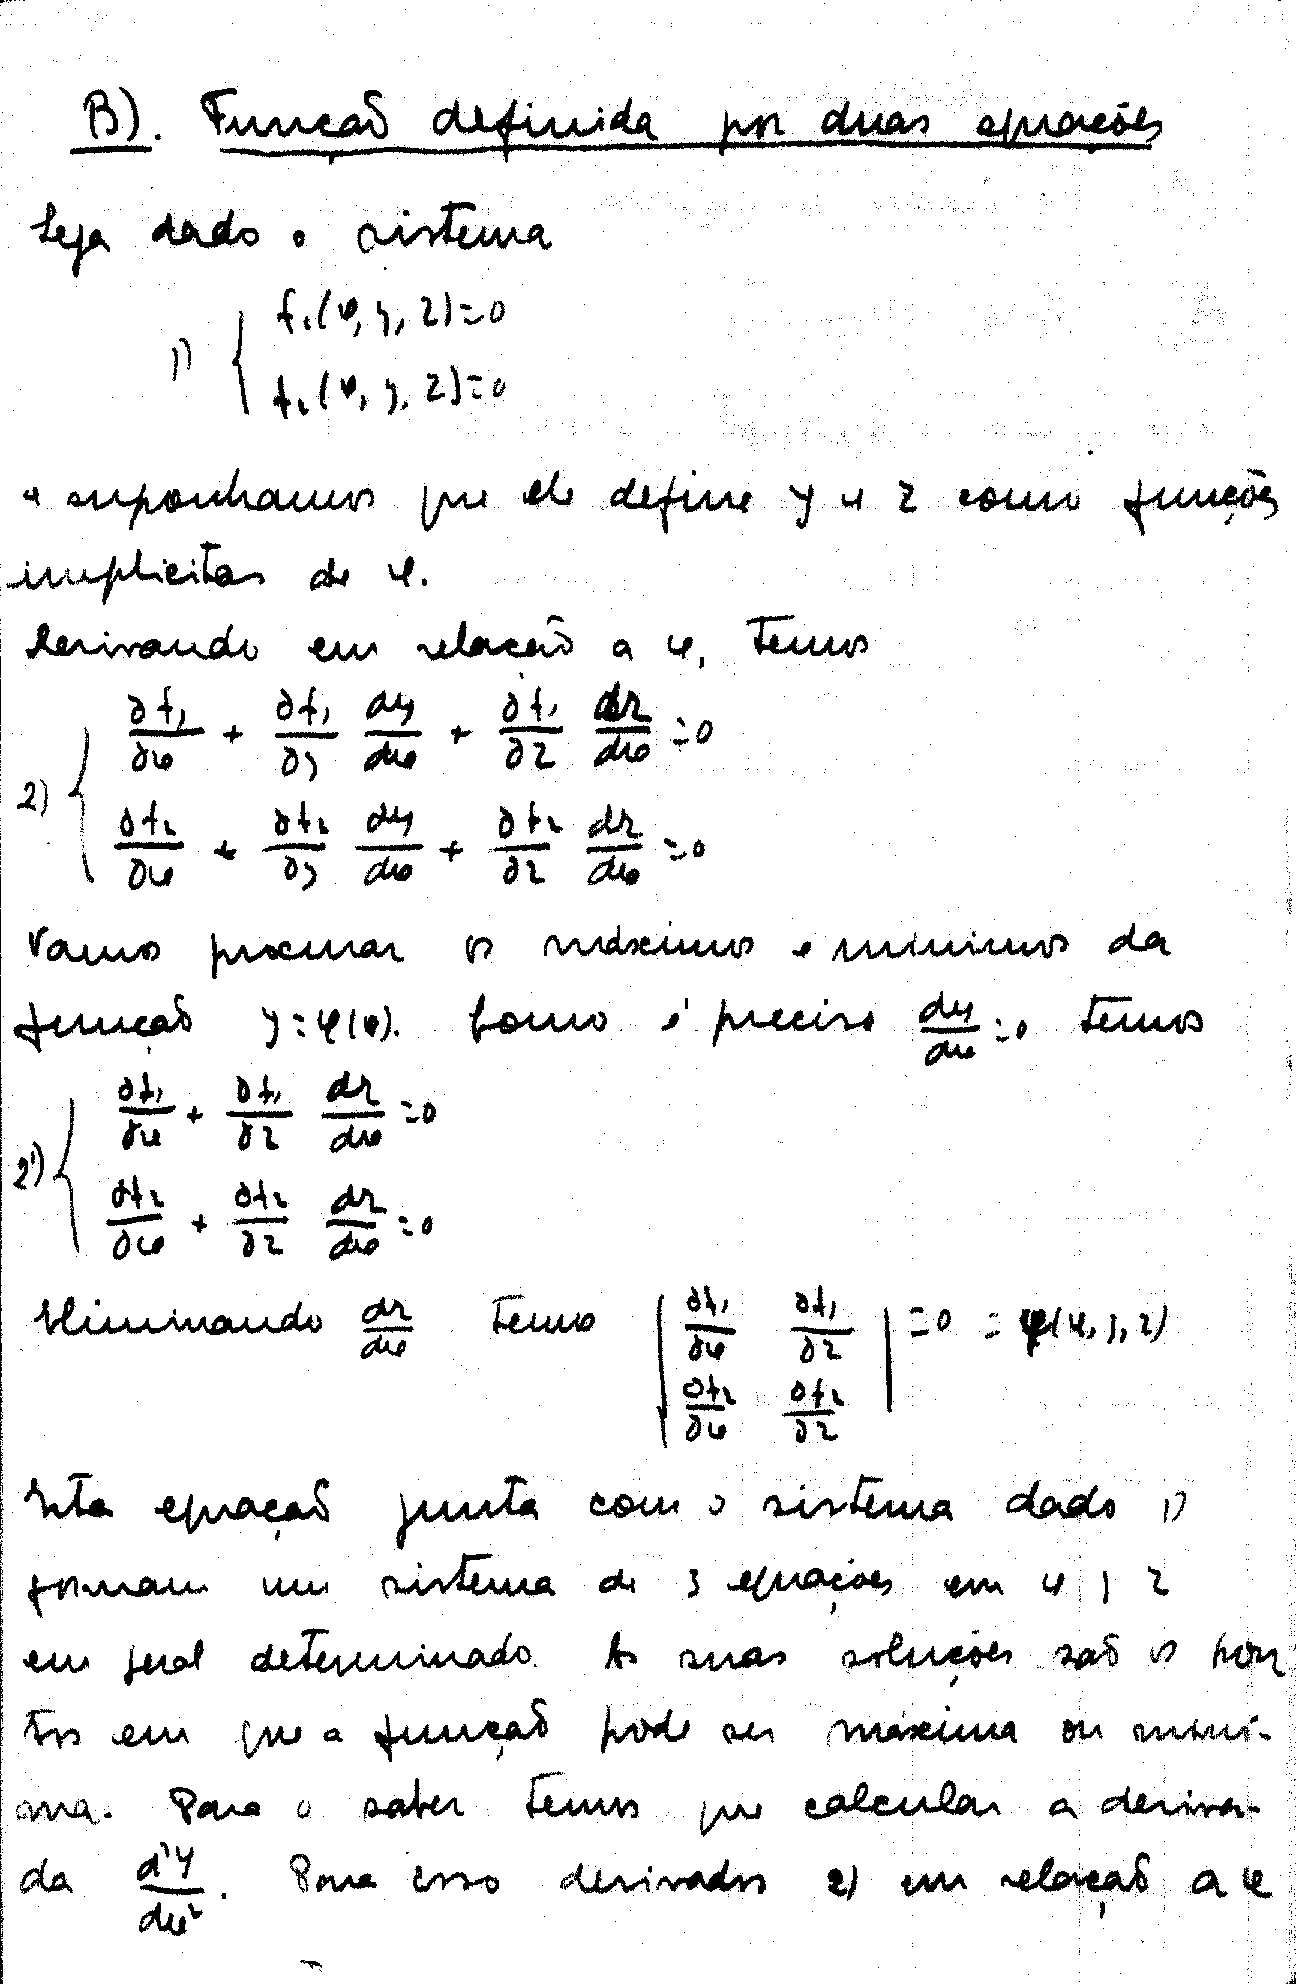 B). Função definida por duas equações
Seja dado o sistema
1) { f₁(x, y, z)=0
f₂(x, y, z)=0
e suponhamos que ele define y e z como funções
implicitas de x.
Derivando em relação a x, temos
2) { ∂f₁/∂x + ∂f₁/∂y dy/dx + ∂f₁/∂z dz/dx = 0
∂f₂/∂x + ∂f₂/∂y dy/dx + ∂f₂/∂z dz/dx = 0
Vamos procurar os máximos e minimos da
função y=φ(x). Como é preciso dy/dx=0 temos
2') { ∂f₁/∂x + ∂f₁/∂z dz/dx = 0
∂f₂/∂x + ∂f₂/∂z dz/dx = 0
Eliminando dz/dx temos | ∂f₁/∂x ∂f₁/∂z | =0 = φ(x, y, z)
| ∂f₂/∂x ∂f₂/∂z |
Esta equação junta com o sistema dado 1)
formam um sistema de 3 equações em x y z
em geral determinado. As suas soluções são os pon
tos em que a função pode ser máxima ou mini-
ma. Para o saber temos que calcular a deriva-
da d²y/dx². Para isso derivados 2) em relação a x